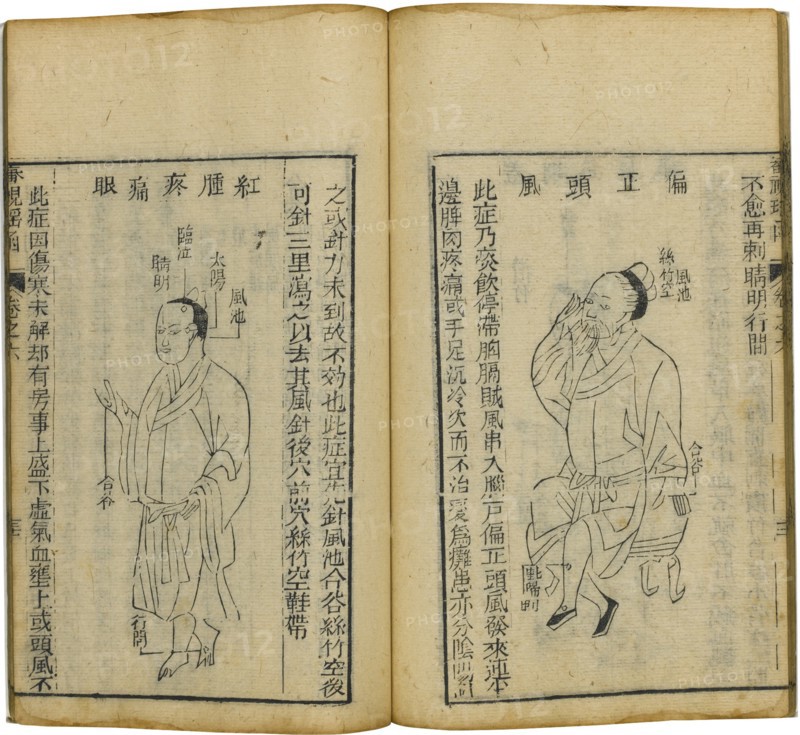 不愈再刺睛明行間
偏正頭風
風池
絲竹空
合谷
此症乃痰飲停滯胸膈賊風串入腦戶偏正頭風發來連半
邊脾肉疼痛或手足沉冷久而不治變為癱患亦分陰
之或針力未到故不効也此症宜先針風池合谷絲竹空後
可針三里瀉之以去其風針後穴前穴絲竹空鞋帶
紅腫疼痛眼
風池
太陽
臨泣
睛明
合谷
行間
此症因傷寒未解却有房事上盛下虛氣血壅上或頭風不
審視瑤函
卷之六
PHOTO12